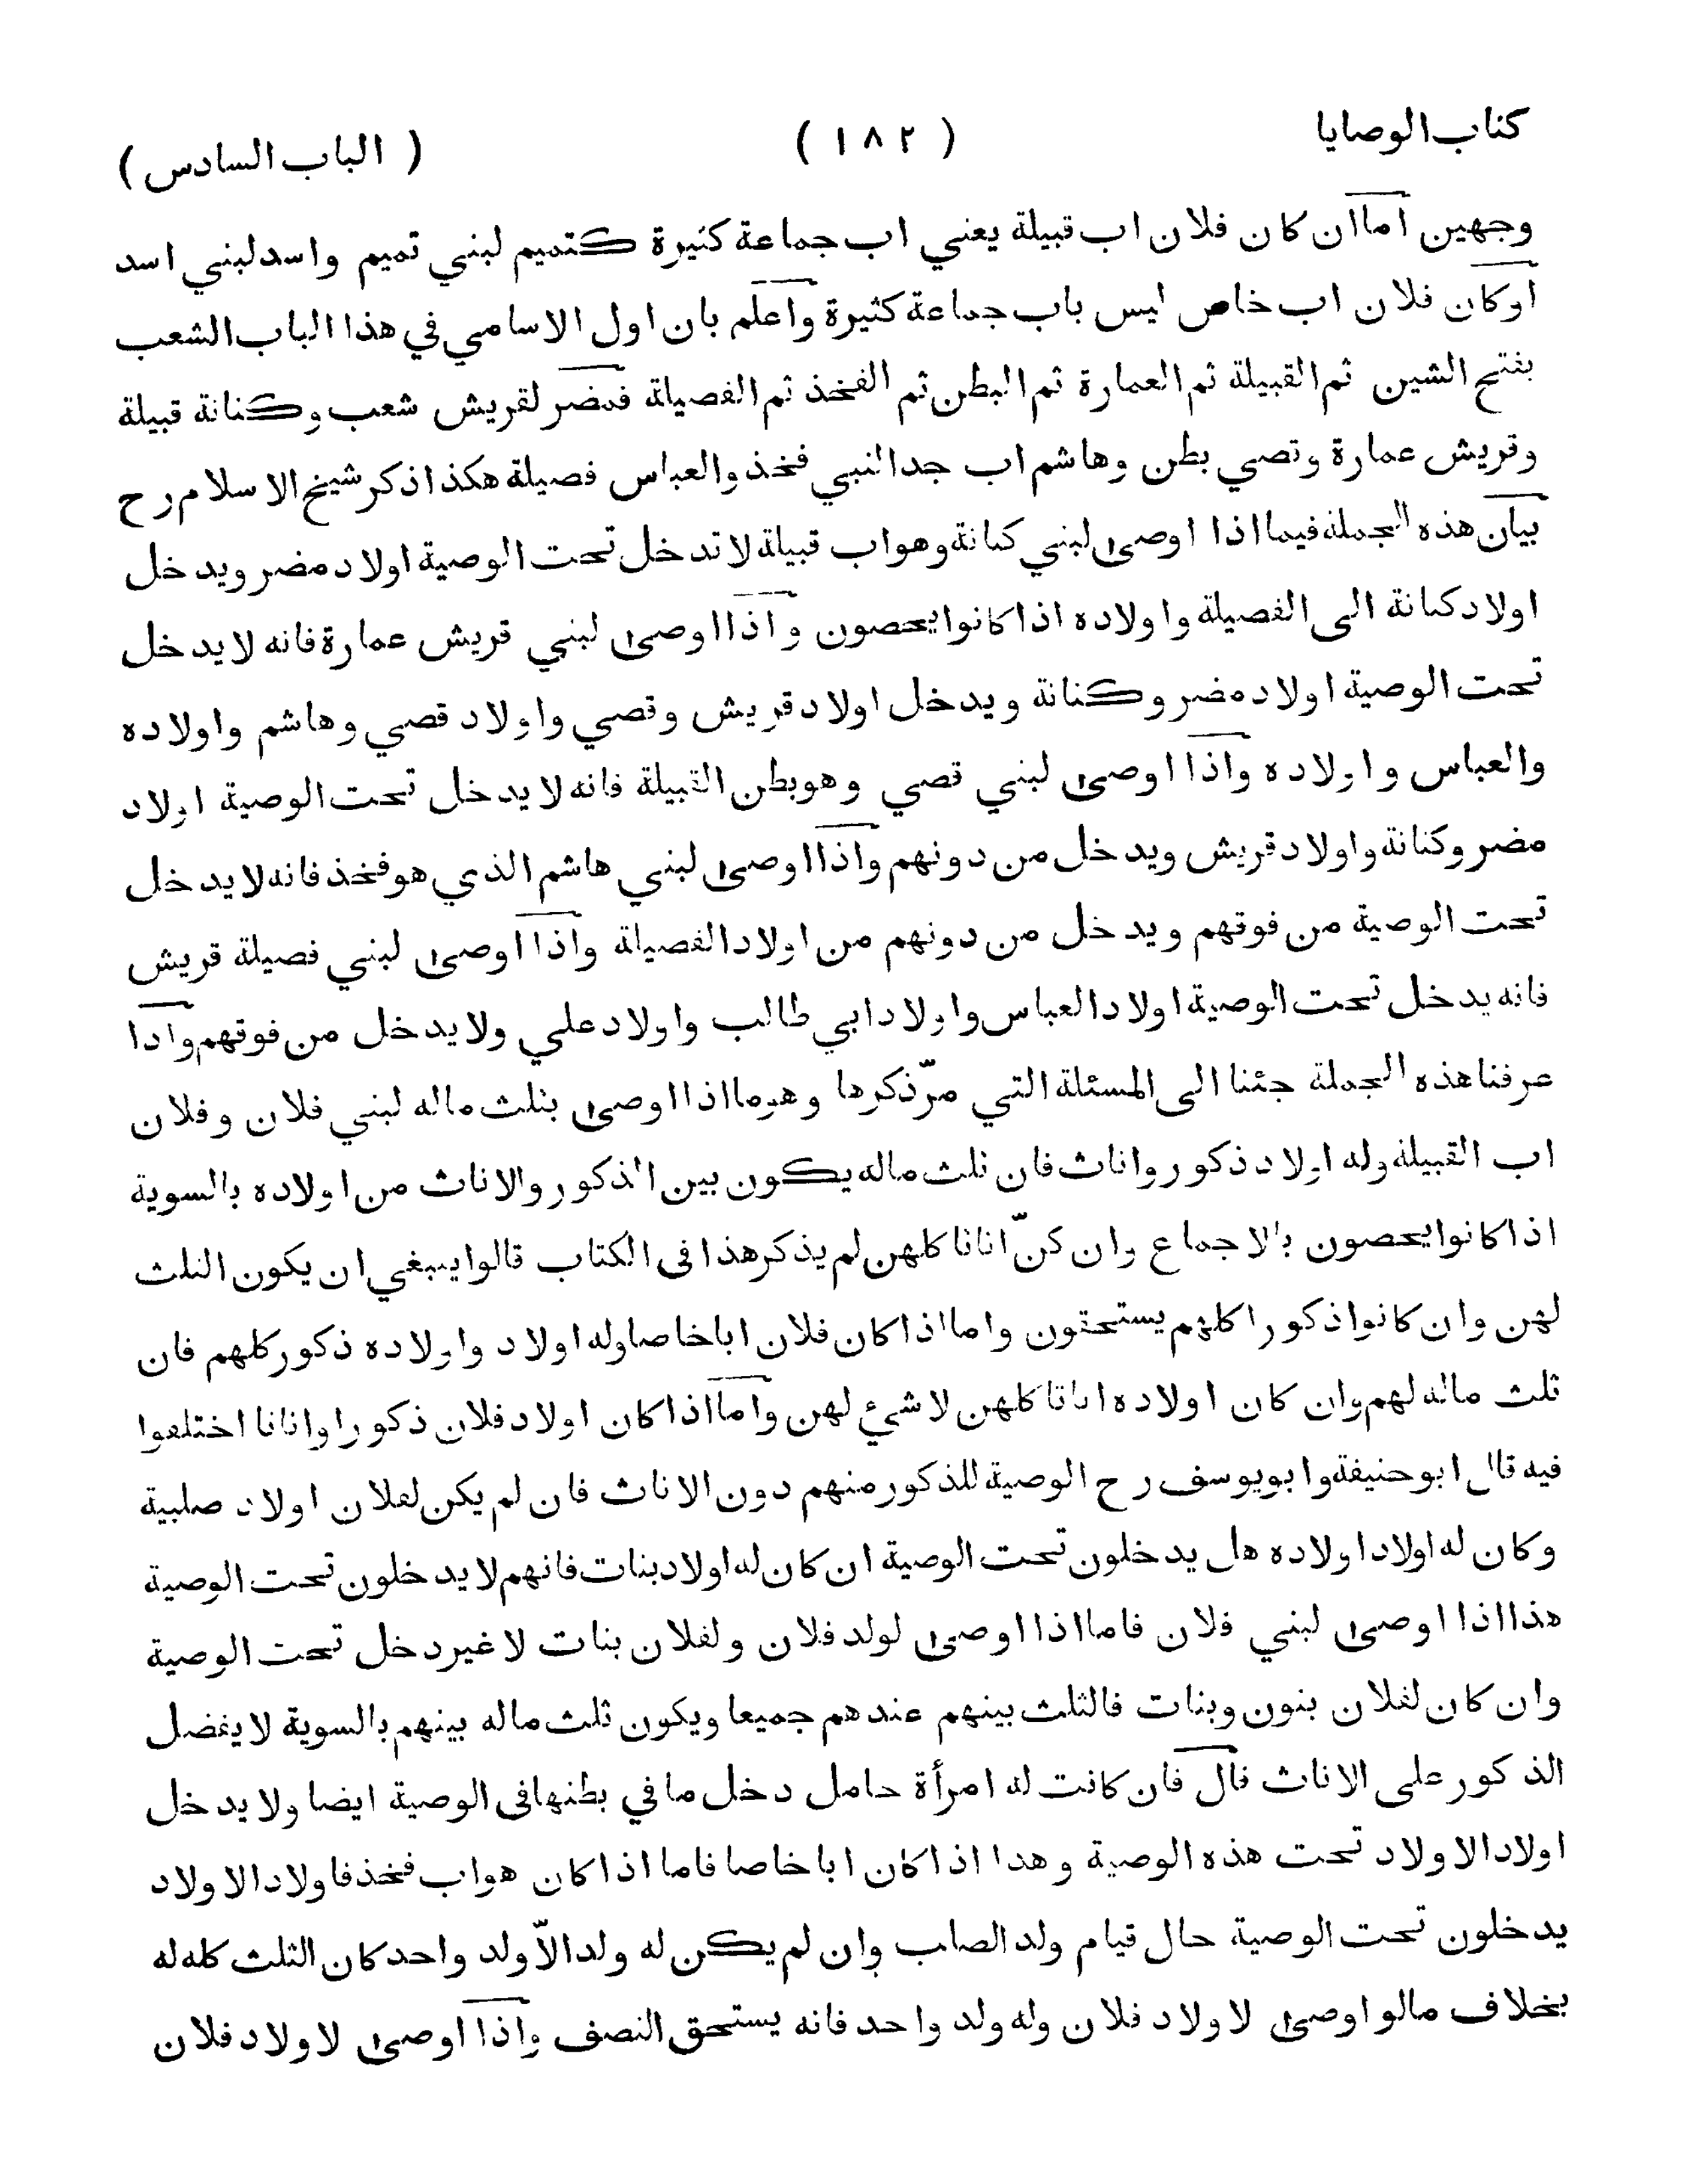 كتاب الوصايا ( ١٨٢ ) ( الباب السادس )
وجهين اما ان كان فلان اب قبيلة يعني اب جماعة كثيرة كتميم لبني تميم واسد لبني اسد
او كان فلان اب خاص ليس باب جماعة كثيرة واعلم بان اول الاسامي في هذا الباب الشعب
بفتح الشين ثم القبيلة ثم العمارة ثم البطن ثم الفخذ ثم الفصيلة فمضر لقريش شعب وكنانة قبيلة
وقريش عمارة وقصي بطن وهاشم اب جد النبي فخذ والعباس فصيلة هكذا ذكر شيخ الاسلام رح
بيان هذه الجملة فيما اذا اوصى لبني كنانة وهو اب قبيلة لا تدخل تحت الوصية اولاد مضر ويدخل
اولاد كنانة الى الفصيلة واولاده اذا كانوا يحصون واذا اوصى لبني قريش عمارة فانه لا يدخل
تحت الوصية اولاد مضر وكنانة ويدخل اولاد قريش وقصي واولاد قصي وهاشم واولاده
والعباس واولاده واذا اوصى لبني قصي وهو بطن القبيلة فانه لا يدخل تحت الوصية اولاد
مضر وكنانة واولاد قريش ويدخل من دونهم واذا اوصى لبني هاشم الذي هو فخذ فانه لا يدخل
تحت الوصية من فوقهم ويدخل من دونهم من اولاد الفصيلة واذا اوصى لبني فصيلة قريش
فانه يدخل تحت الوصية اولاد العباس واولاد ابي طالب واولاد علي ولا يدخل من فوقهم واذا
عرفنا هذه الجملة جئنا الى المسئلة التي مرّ ذكرها وهو ما اذا اوصى بثلث ماله لبني فلان وفلان
اب القبيلة وله اولاد ذكور واناث فان ثلث ماله يكون بين الذكور والاناث من اولاده بالسوية
اذا كانوا يحصون بالاجماع وان كنّ اناثا كلهن لم يذكر هذا في الكتاب قالوا ينبغي ان يكون الثلث
لهن وان كانوا ذكورا كلهم يستحقون واما اذا كان فلان ابا خاصا وله اولاد واولاده ذكور كلهم فان
ثلث ماله لهم وان كان اولاده اناثا كلهن لا شئ لهن واما اذا كان اولاد فلان ذكورا واناثا اختلفوا
فيه قال ابو حنيفة وابو يوسف رح الوصية للذكور منهم دون الاناث فان لم يكن لفلان اولاد صلبية
وكان له اولاد اولاده هل يدخلون تحت الوصية ان كان له اولاد بنات فانهم لا يدخلون تحت الوصية
هذا اذا اوصى لبني فلان فاما اذا اوصى لولد فلان ولفلان بنات لا غير دخل تحت الوصية
وان كان لفلان بنون وبنات فالثلث بينهم عندهم جميعا ويكون ثلث ماله بينهم بالسوية لا يفضل
الذكور على الاناث قال فان كانت له امرأة حامل دخل ما في بطنها في الوصية ايضا ولا يدخل
اولاد الاولاد تحت هذه الوصية وهذا اذا كان ابا خاصا فاما اذا كان هو اب فخذ فاولاد الاولاد
يدخلون تحت الوصية حال قيام ولد الصلب وان لم يكن له ولد الاّ ولد واحد كان الثلث كله له
بخلاف ما لو اوصى لاولاد فلان وله ولد واحد فانه يستحق النصف واذا اوصى لاولاد فلان